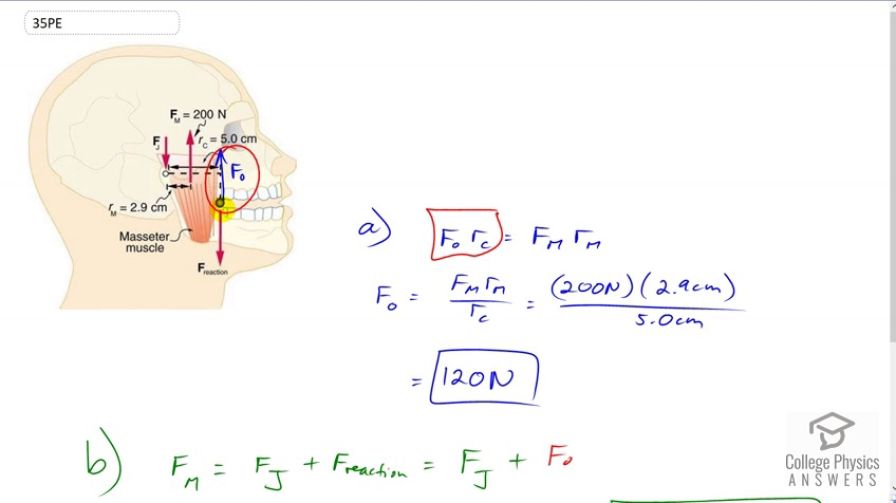 35PE
F_M = 200 N
F_J
r_C = 5.0 cm
F_o
r_M = 2.9 cm
Masseter
muscle
F_reaction
a) F_o r_c = F_M r_M
F_o = F_M r_M / r_c = (200N)(2.9cm) / 5.0cm
= 120N
b) F_M = F_J + F_reaction = F_J + F_o
College Physics
ANSWERS